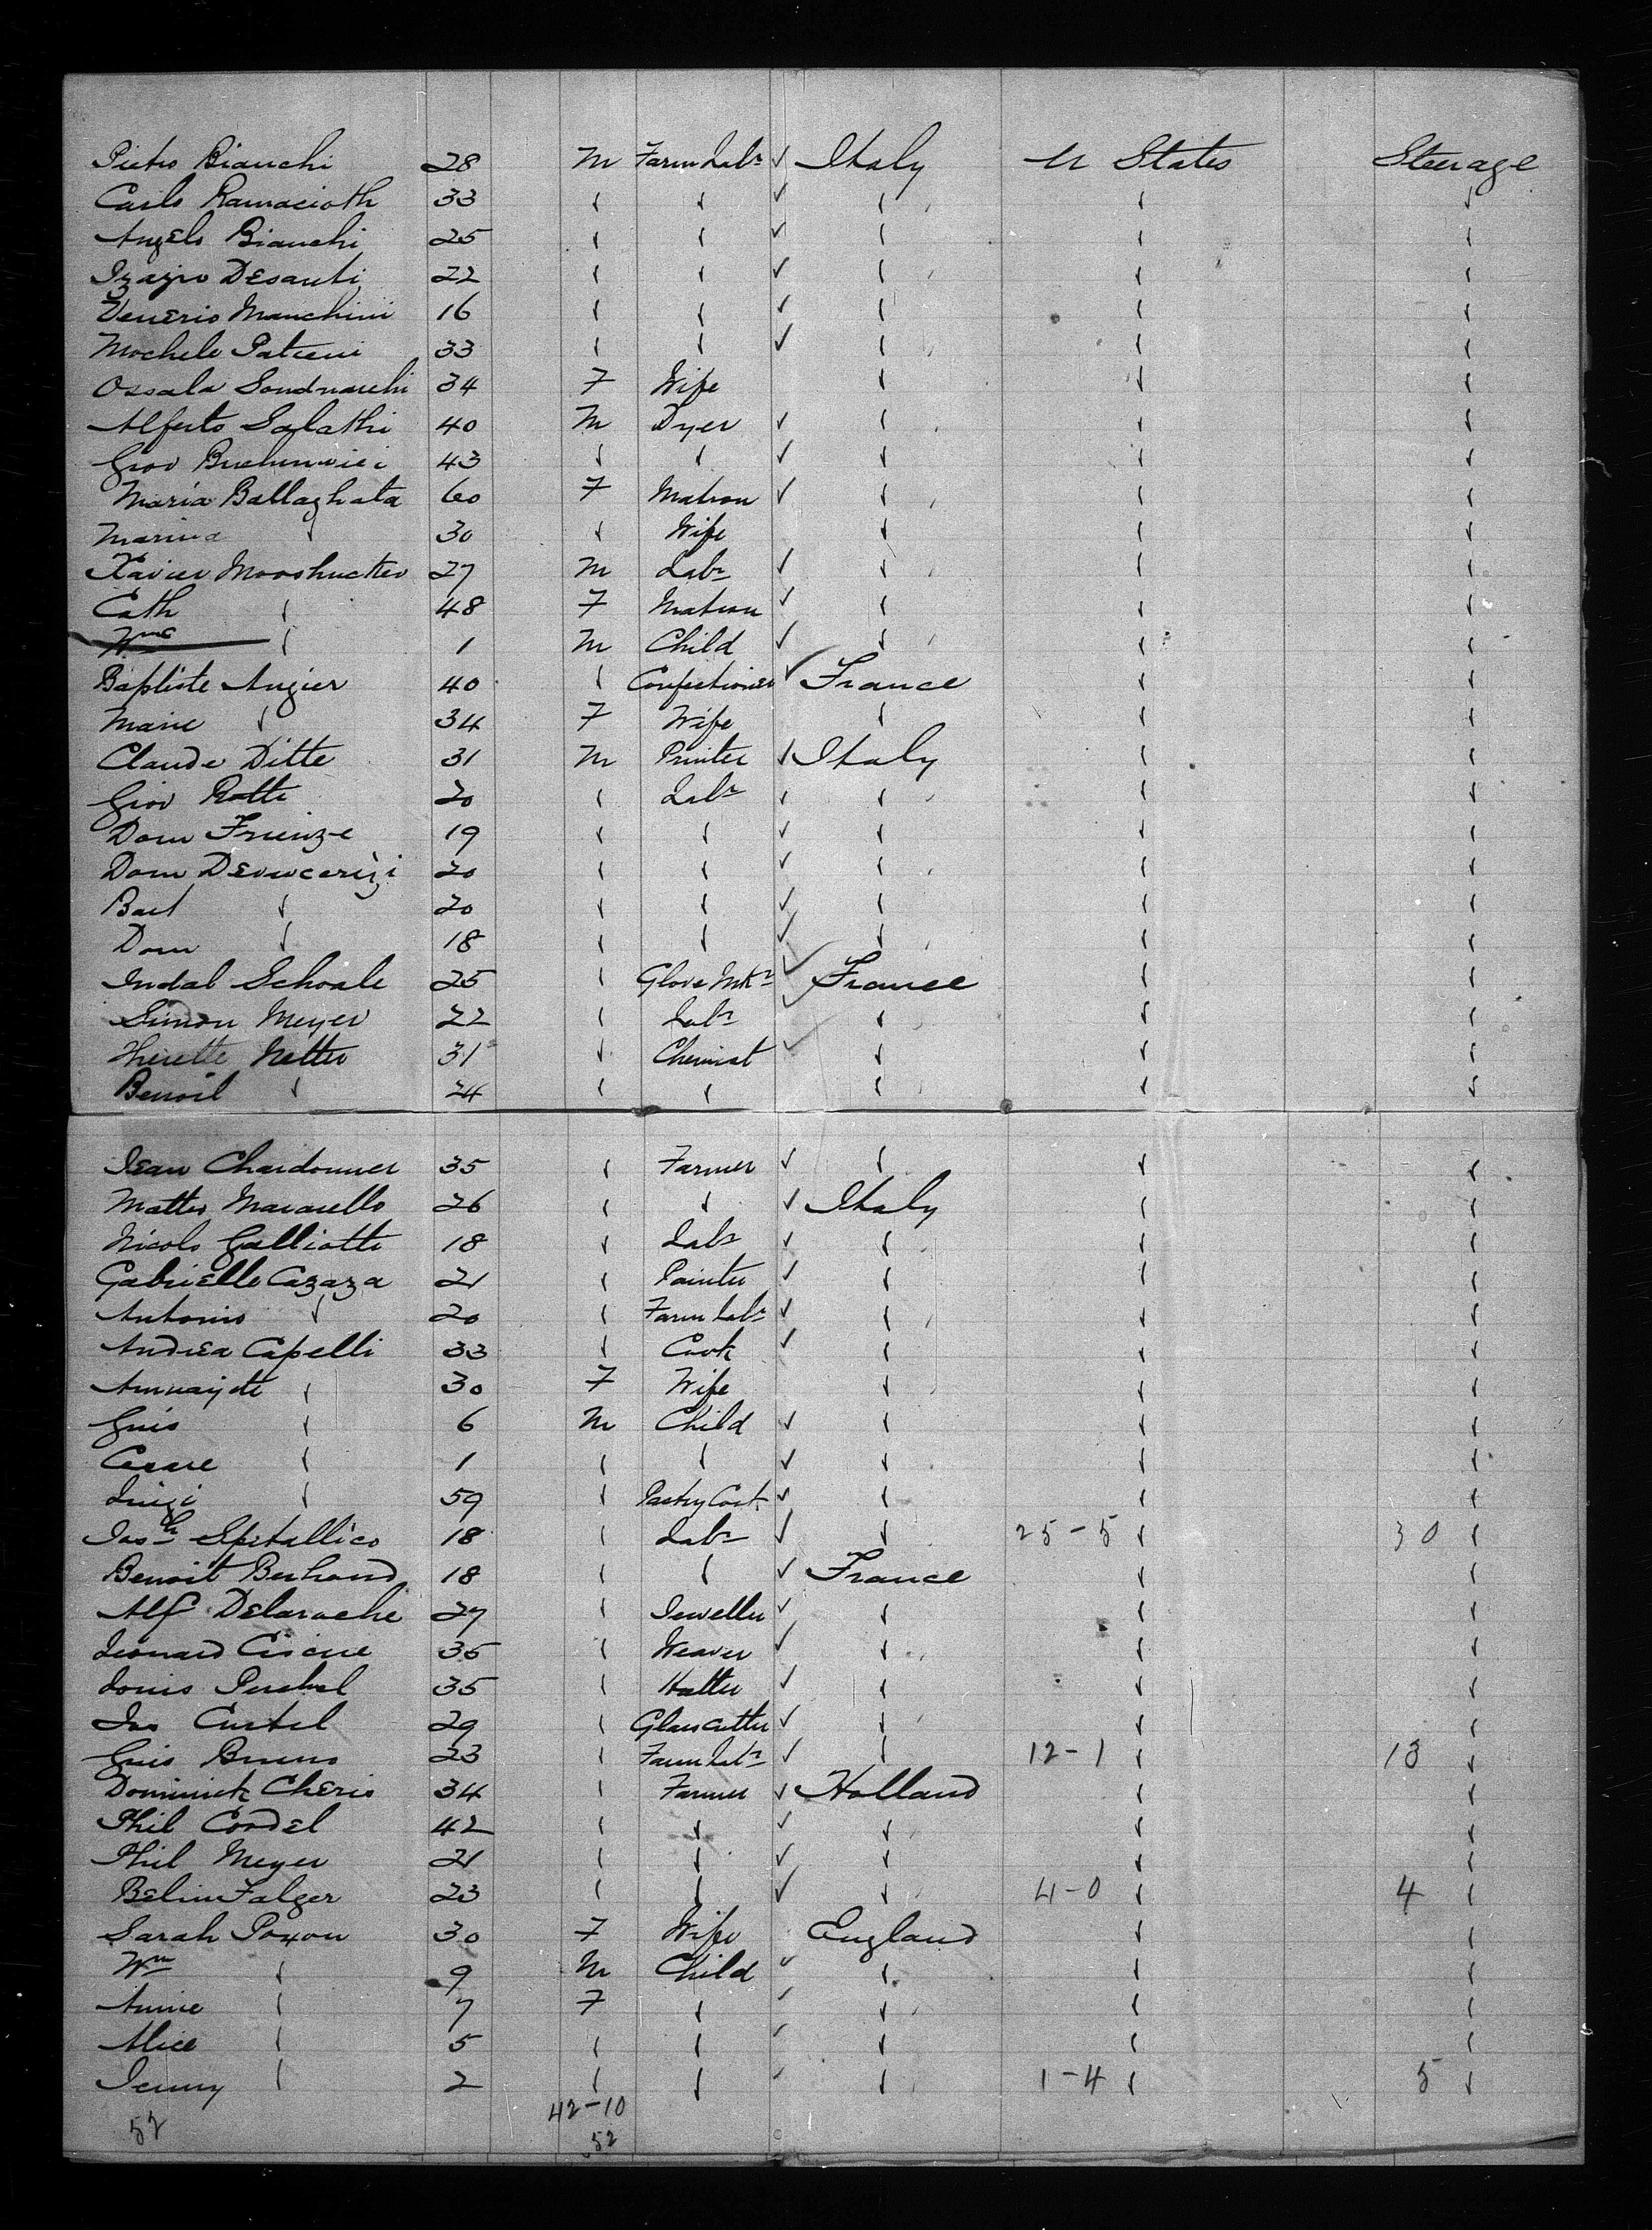 Pietro Bianchi 28 M Farm Labr ✓ Italy U States Steerage
Carlo Ramacioth 33 " " ✓ " " "
Angelo Bianchi 25 " " ✓ " " "
Desanti 22 " " ✓ " " "
Venerio Manchini 16 " " ✓ " " "
Mochele 33 " " ✓ " " "
Ossala 34 F Wife " " "
Alferto Salathi 40 M Dyer ✓ " " "
Giov 43 " " ✓ " " "
Maria Battaghata 60 F Matron ✓ " " "
Marina " 30 " Wife " " "
Xavier Mooshucker 27 M Labr ✓ " " "
Cath " 48 F Matron ✓ " " "
Wm " 1 M Child ✓ " " "
Baptiste Angier 40 " Confectioner ✓ France " "
Marie " 34 F Wife " " "
Claude Ditte 31 M Printer ✓ Italy " "
Giov Rotti 20 " Labr ✓ " " "
Dom Frienze 19 " " ✓ " " "
Dom 20 " " ✓ " " "
Bart " 20 " " ✓ " " "
Dom " 18 " " ✓ " " "
Indal Schoale 25 " Glove Mkr ✓ France " "
Simon Meyer 22 " Labr ✓ " " "
Netter 31 " Chemist ✓ " " "
Benoit " 24 " " " " "
Jean Chardonner 35 " Farmer ✓ " " "
Matteo Mararello 26 " " ✓ Italy " "
Nicolo Galliotti 18 " Labr ✓ " " "
Gabrielle Cazaza 21 " Painter ✓ " " "
Antonio " 20 " Farm Labr ✓ " " "
Andrea Capelli 33 " Cook ✓ " " "
" 30 F Wife " " "
Guis " 6 M Child ✓ " " "
Cesare " 1 " " ✓ " " "
Luigi " 59 " Pastry Cook ✓ " " "
Josh Spitallico 18 " Labr ✓ " 25-5 " 30 "
Benoit Berhand 18 " " ✓ France " "
Alf Delaroche 27 " Jeweller ✓ " " "
Leonard 35 " Weaver ✓ " " "
Louis 35 " Hatter ✓ " " "
Jas Curtel 29 " Glass cutter ✓ " " "
Guis Bruno 23 " Farm Labr ✓ " 12-1 " 13 "
Dominick Cherio 34 " Farmer ✓ Holland " "
Phil Cordel 42 " " ✓ " " "
Phil Meyer 21 " " ✓ " " "
Falger 23 " " ✓ " 4-0 " 4 "
Sarah Poxon 30 F Wife England " "
Wm " 9 M Child ✓ " " "
Annie " 7 F " ✓ " " "
Alice " 5 " " ✓ " " "
Jenny " 2 " " ✓ " 1-4 " 5 "
42-10
52 52